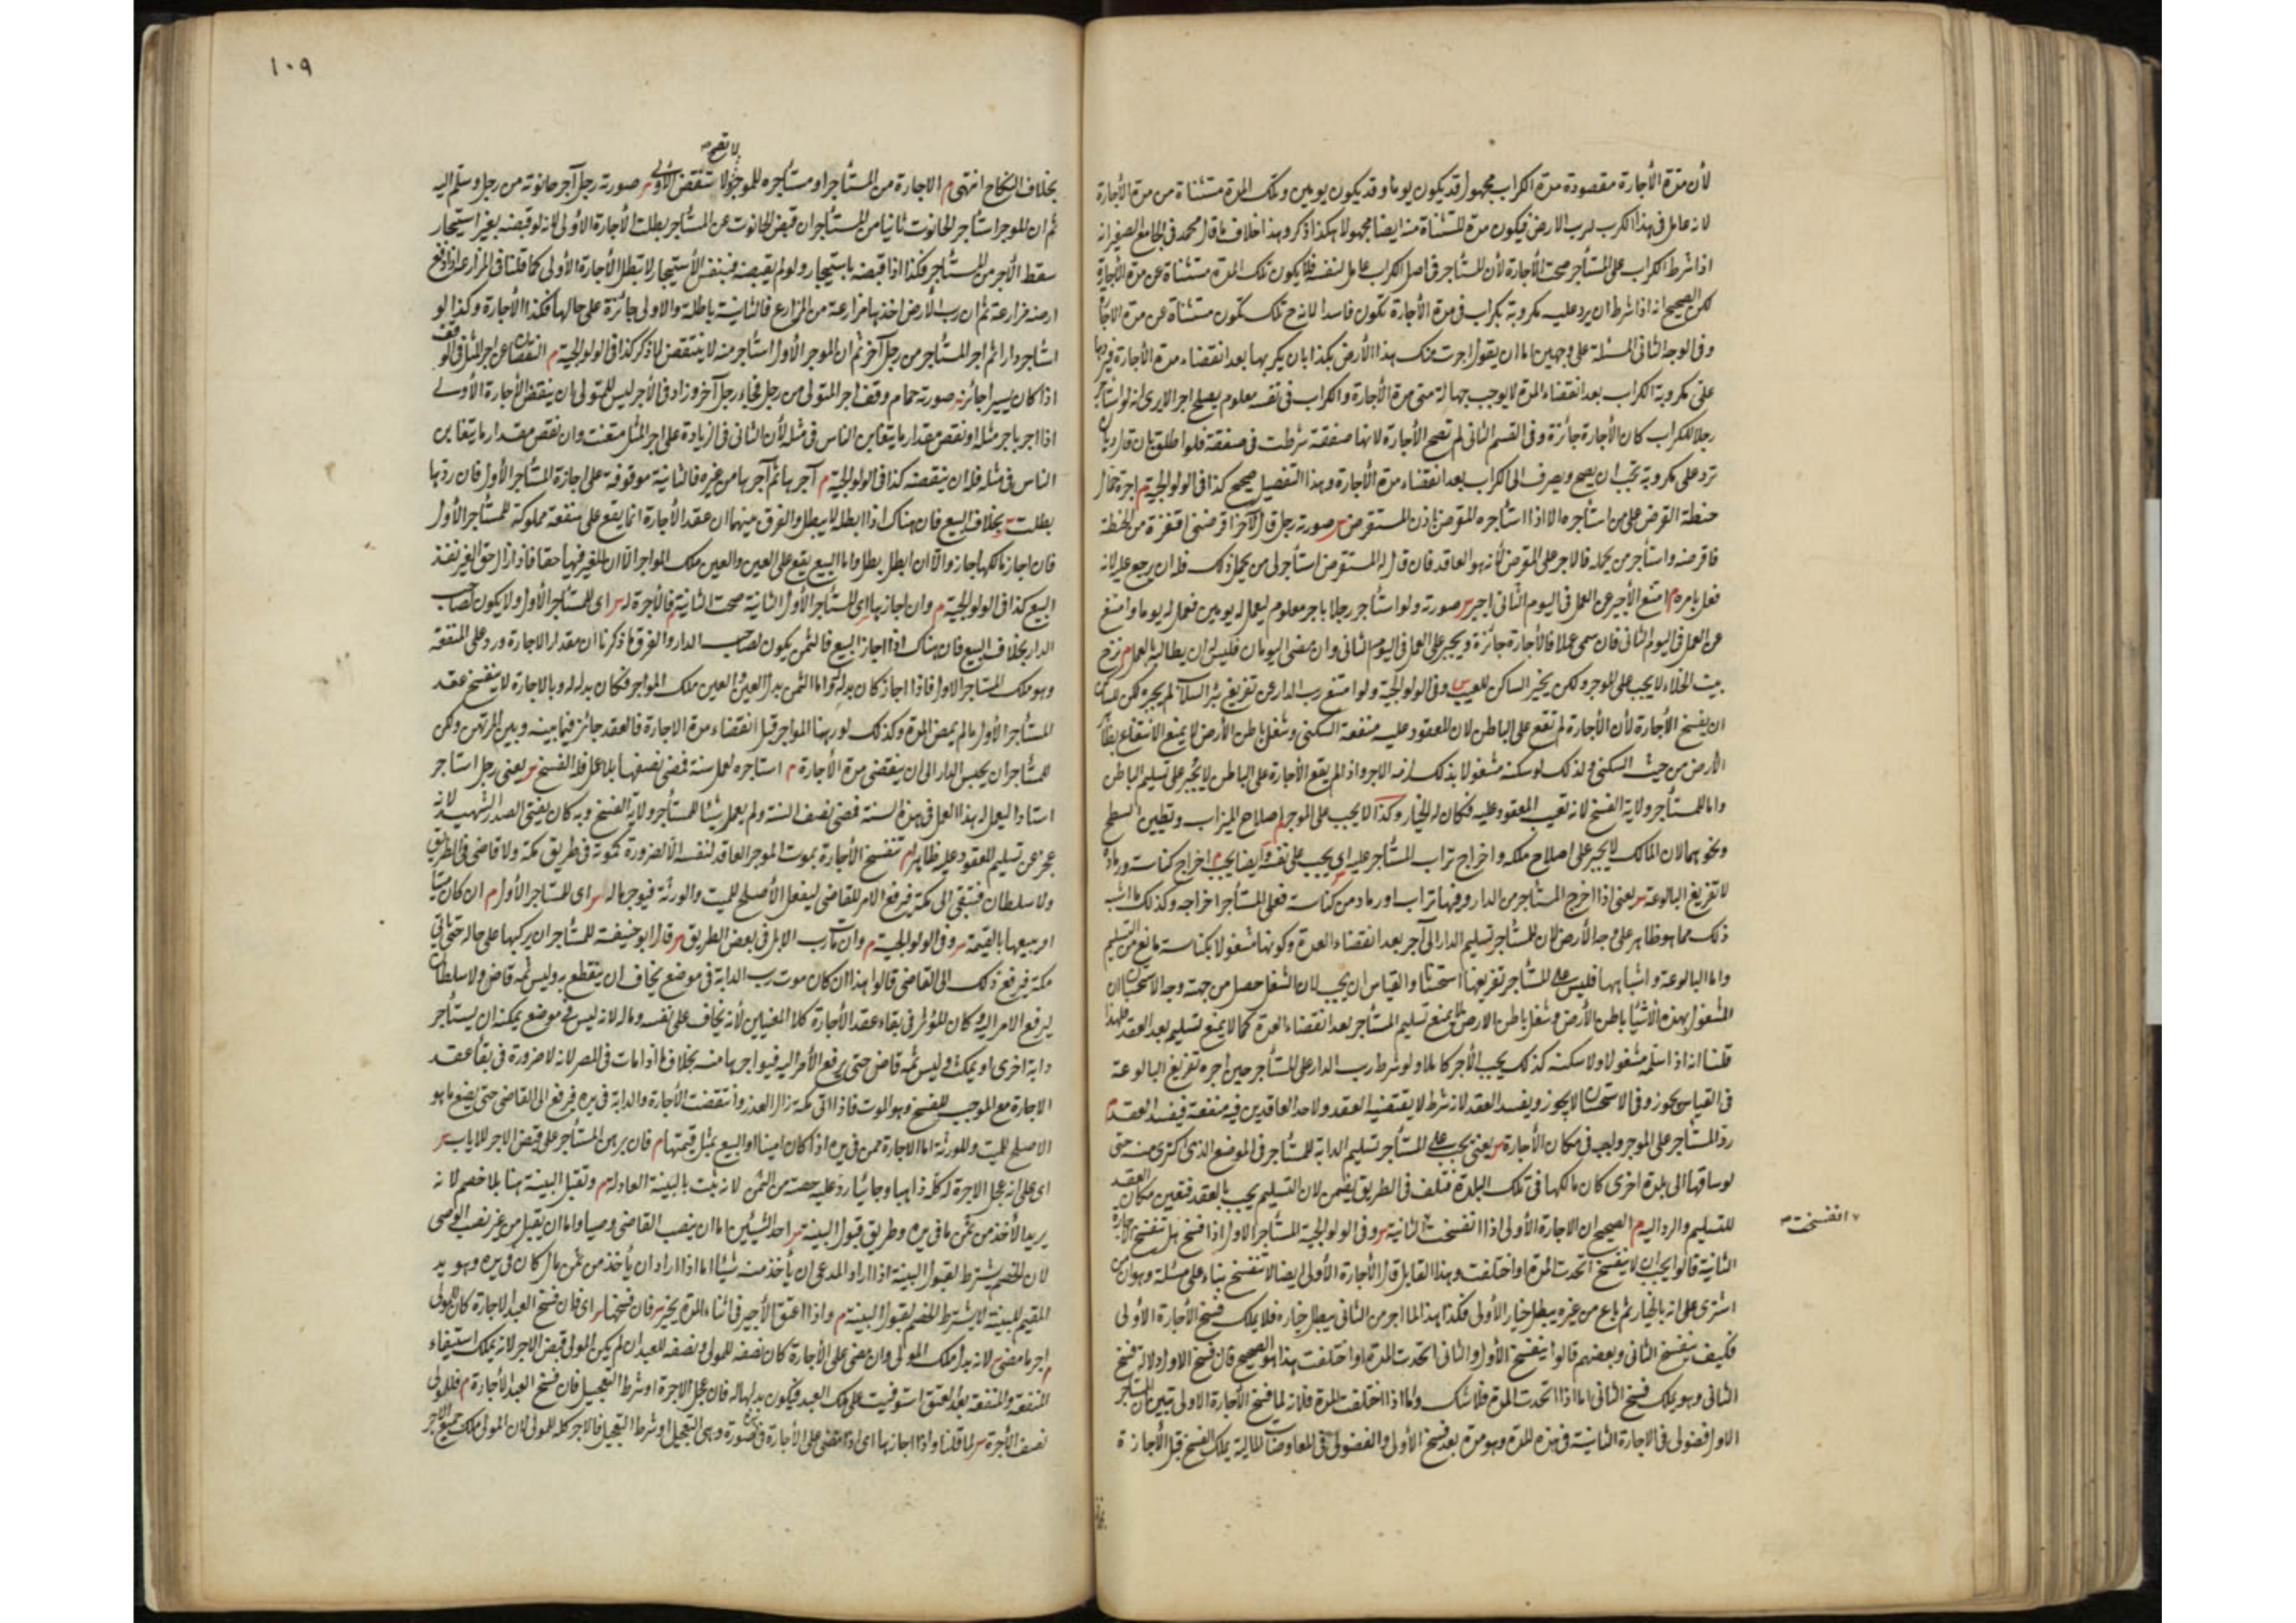 لأن مدة الأجارة مقصودة مدة الكراب مجهول قد يكون يوما وقد يكون يومين وتلك المدة مستثناة من مدة الأجارة
لانه عامل فى هذا الكرب لرب الارض فيكون مدة المستثناة منه ايضا مجهولا هكذا ذكر وهذا خلاف ما قال محمد فى الجامع الصغير انه
اذا شرط الكراب على المستأجر صحت الأجارة لأن المستأجر فى اصل الكراب عامل لنفسه فلا يكون تلك المدة مستثناة عن مدة الأجارة
لكن الصحيح انه اذا شرط ان يرد عليه مكروبة بكراب فى مدة الأجارة تكون فاسدا لانه ح تلك تكون مستثناة عن مدة الاجارة
وفى الوجه الثانى المسئلة على وجهين اما ان يقول اجرت منك هذا الأرض بكذا بان يكربها بعد انقضاء مدة الأجارة فيردها
على مكروبة الكراب بعد انقضاء المدة لا يوجب جهالة متى مدة الأجارة والكراب فى نفسه معلوم يصلح اجرا الا يرى انه لو استأجر
رجلا للكراب كان الأجارة جائزة وفى القسم الثانى لم تصح الأجارة لانها صفقة شرطت فى صفقة فلو اطلق بان قال وبان
ترد على مكروبة تجب ان يصح ويصرف الى الكراب بعد انقضاء مدة الأجارة وهذا التفصيل صحيح كذا فى الولوالجية م اجرة حمال
حنطة القرض على من استأجره الا اذا استأجره المقرض باذن المستقرض س صورته رجل قال لآخر اقرضنى اقفزة من الحنطة
فاقرضه واستأجر من يحمله فالاجر على المقرض لأنه هو العاقد فان قال له المستقرض استأجر لى من يحمل ذلك فله ان يرجع عليه لانه
فعل بامره م امتنع الأجير عن العمل فى اليوم الثانى اجبر س صورته ولو استأجر رجلا باجر معلوم ليعمل له يومين فعمل له يوما وامتنع
عن العمل فى اليوم الثانى فان سمى عملا فالأجارة جائزة ويجبر على العمل فى اليوم الثانى وان مضى اليومان فليس له ان يطالب بالعمل م نزح
بيت الخلاء لا يجب على الموجر ولكن يخير الساكن للعيب س وفى الولوالجية ولو امتنع رب الدار عن تفريغ بئر السلآ لم يجبر لكن للساكن
ان يفسخ الأجارة لأن الأجارة لم تقع على الباطن لان المعقود عليه منفعة السكنى وشغل باطن الأرض لا يمنع الانتفاع بظاهر
الأرض من حيث السكنى ولذلك لو سكنه مشغولا بذلك لزمه الاجر واذا لم يقع الأجارة على الباطن لا يجبر على تسليم الباطن
واما للمستأجر ولاية الفسخ لانه تعيب المعقود عليه فكان له الخيار وكذا لا يجب على الموجر اصلاح الميزاب وتطيين السطح
ونحوهما لان المالك لا يجبر على اصلاح ملكه واخراج تراب المستأجر عليه اى يجب على نفسه وايضا يجب م اخراج كناسته ورماده
لا تفريغ البالوعة س يعنى اذا اخرج المستأجر من الدار وفيها تراب او رماد من كناسته فعلى المستأجر اخراجه وكذلك ما اشبه
ذلك مما هو ظاهر على وجه الأرض لان للمستأجر تسليم الدار الى آجر بعد انقضاء المدة وكونها مشغولا بكناسته مانع من التسليم
واما البالوعة واشباهها فليس على المستأجر تفريغها استحسانا والقياس ان يجب لان الشغل حصل من جهته وجه الاستحسان ان
المشغول بهذه الأشياء باطن الأرض وشغل باطن الارض لا يمنع تسليم المستأجر بعد انقضاء المدة كما لا يمنع تسليم بعد العقد فلهذا
قلنا انه اذا سلمه مشغولا ولا سكنه كذلك يجب الأجر كاملا ولو شرط رب الدار على المستأجر حين اجره تفريغ البالوعة
فى القياس يجوز وفى الاستحسان لا يجوز ويفسد العقد لانه شرط لا يقتضيه العقد ولاحد العاقدين فيه منفعة فيفسد العقد م
رد المستأجر على الموجر واجب فى مكان الأجارة س يعنى يجب على المستأجر تسليم الدابة للمستأجر فى الموضع الذى اكترى منه حتى
لو ساقها الى بلدة اخرى كان مالكها فى تلك البلدة فتلف فى الطريق يضمن لان التسليم يجب بالعقد فتعين مكان العقد
للتسليم والرد اليه م الصحيح ان الاجارة الأولى اذا انفسخت الثانية س وفى الولوالجية المستأجر الاول اذا فسخ هل تنفسخ الاجارة
انفسخت صح
الثانية قالوا يجب ان لا ينفسخ اتحدت المدة او اختلفت وهذا القايل قال الأجارة الأولى ايضا لا تنفسخ بناء على مسئلة وهو ان من
اشترى على انه بالخيار ثم باع من غيره يبطل خيار الأولى فكذا هذا لما اجر من الثانى يبطل خياره فلا يملك فسخ الأجارة الأولى
فكيف ينفسخ الثانى وبعضهم قالوا ينفسخ الأول والثانى اتحدت المدة او اختلفت هذا هو الصحيح فان فسخ الاول دلالة فسخ
الثانى وهو يملك فسخ الثانى اما اذا اتحدت المدة فلا شك واما اذا اختلفت المدة فلانه لما فسخ الأجارة الاولى تبين ان المستأجر
الاول فضولى فى الاجارة الثانية فى هذه المدة وهو مدة بعد فسخ الأولى والفضولى فى المعاوضات المالية يملك الفسخ قبل الأجازة
١٠٩
لا تصح صح
بخلاف النكاح انتهى م الاجارة من المستأجر او مستأجره للموجر ولا تنقض الأولى س صورته رجل آجر حانوته من رجل وسلم اليه
ثم ان الموجر استأجر الحانوت ثانيا من المستأجر ان قبض الحانوت عن المستأجر بطلت الأجارة الأولى لانه لو قبضه بغير استيجار
سقط الأجر من المستأجر فكذا اذا قبضه باستيجار ولو لم يقبضه فبنفس الأستيجار لا تبطل الأجارة الأولى كما قلنا فى المزارعة اذا دفع
ارضه مزارعة ثم ان رب الأرض اخذها مزارعة من المزارع فالثانية باطلة والاولى جائزة على حالها فكذا الأجارة وكذا لو
استأجر دارا ثم اجر المستأجر من رجل آخر ثم ان الموجر الأول استأجر منه لا ينتقض لما ذكر كذا فى الولوالجية م النقصان عن اجر المثل فى الوقف
اذا كان يسيرا جائز س صورته حمام وقف اجر المتولى من رجل فجاء رجل آخر وزاد فى الأجر ليس للمتولى ان ينقض الأجارة الأولى
اذا اجر باجر مثله او نقص مقدار ما يتغابن الناس فى مثله لأن الثانى فى الزيادة على اجر المثل متعنت وان نقص مقدار ما يتغابن
الناس فى مثله فله ان ينقضه كذا فى الولوالجية م آجرها ثم آجرها من غيره فالثانية موقوفة على اجازة المستأجر الأول فان ردها
بطلت س بخلاف البيع فان هناك اذا ابطله لا يبطل والفرق بينهما ان عقد الأجارة انما يقع على منفعة مملوكة للمستأجر الأول
فان اجاز مالكها جاز والا ان ابطل بطل واما البيع يقع على العين والعين ملك المواجر الا ان للغير فيها حقا فاذا زال حق الغير نفذ
البيع كذا فى الولوالجية م وان اجازها اى المستأجر الأول الثانية صحت الثانية فالأجرة له س اى للمستأجر الأول ولا يكون لصاحب
الدار بخلاف البيع فان هناك اذا اجاز البيع فالثمن يكون لصاحب الدار والفرق ما ذكرنا ان مقدار الاجارة ورد على المنفعة
وهو ملك المستأجر الاول فاذا اجاز كان بدله له واما الثمن بدل العين والعين ملك المواجر فكان بدله له وبالاجارة لا ينفسخ عقد
المستأجر الأول ما لم يمض المدة وكذلك لو رهنها المواجر قبل انقضاء مدة الاجارة فالعقد جائز فيما بينه وبين المرتهن ولكن
للمستأجر ان يحبس الدار الى ان ينقضى مدة الأجارة م استاجره لعمل سنة فمضى نصفها بلا عمل فله الفسخ س يعنى رجل استاجر
استادا ليعمل له هذا العمل فى هذه السنة فمضى نصف السنة ولم يعمل شيئا للمستأجر ولاية الفسخ وبه كان يفتى الصدر الشهيد لانه
عجز عن تسليم المعقود عليه ظاهرا م تنفسخ الأجارة بموت الموجر العاقد لنفسه الا لضرورة كموته فى طريق مكة ولا قاضى فى الطريق
ولا سلطان فتبقى الى مكة فيرفع الامر للقاضى ليفعل الأصلح للميت والورثة فيوجرها له س اى للمستاجر الأول م ان كان امينا
او يبيعها بالقيمة س وفى الولوالجية م وان مات رب الابل فى بعض الطريق س قال ابو حنيفة للمستأجر ان يركبها على حاله حتى ياتى
مكة فيرفع ذلك الى القاضى قالوا هذا ان كان موت رب الدابة فى موضع يخاف ان ينقطع به وليس ثمه قاض ولا سلطان
ليرفع الامر اليه فكان المؤثر فى بقاء عقد الأجارة كلا المعنيين لأنه يخاف على نفسه وماله لانه ليس فى موضع يمكنه ان يستأجر
دابة اخرى او يمكث وليس ثمه قاض حتى يرفع الأمر اليه فيواجرها منه بخلاف ما اذا مات فى المصر لانه لا ضرورة فى بقاء عقد
الاجارة مع الموجب للفسخ وهو الموت فاذا اتى مكة زال العذر وانتقضت الأجارة والدابة فى يده فيرفع الى القاضى حتى يصنع ما هو
الاصلح للميت وللورثة اما الاجارة ممن فى يده اذا كان امينا او البيع بمثل قيمتها م فان برهن المستأجر على قبض الاجر للاياب س
اى على انه عجل الاجرة له كله ذاهبا وجائيا رد عليه حصته من الثمن لانه يثبت بالبينة العادلة م وتقبل البينة هنا بلا خصم لانه
يريد الأخذ من ثمن ما فى يده وطريق قبول البينة س احد الشيئين اما ان ينصب القاضى وصيا واما ان يقبل من غير نصب الوصى
لأن الخصم يشترط لقبول البينة اذا اراد المدعى ان يأخذ منه شيئا اما اذا اراد ان يأخذ من ثمن مال كان فى يده وهو يد
المقيم للبينة لا يشترط الخصم لقبول البينة م واذا اعتق الأجير فى اثناء المدة يخير س فان فسخها س اى فان فسخ العبد الاجارة كان للمولى
م اجر ما مضى س لانه بدل ملك المولى وان مضى على الأجارة كان نصفه للمولى ونصفه للعبد ان لم يكن المولى قبض الاجر لانه يملك استيفاء
المنفعة والمنفعة بعد العتق استوفيت على ملك العبد فيكون بدلها له فان عجل الاجرة او شرط التعجيل فان فسخ العبد الأجارة م فللمولى
نصف الأجرة س لما قلنا واذا اجازها اى اذا مضى على الأجارة فى صورة وهى التعجيل او شرط التعجيل فالاجر كله للمولى لان المولى ملك جميع الاجر